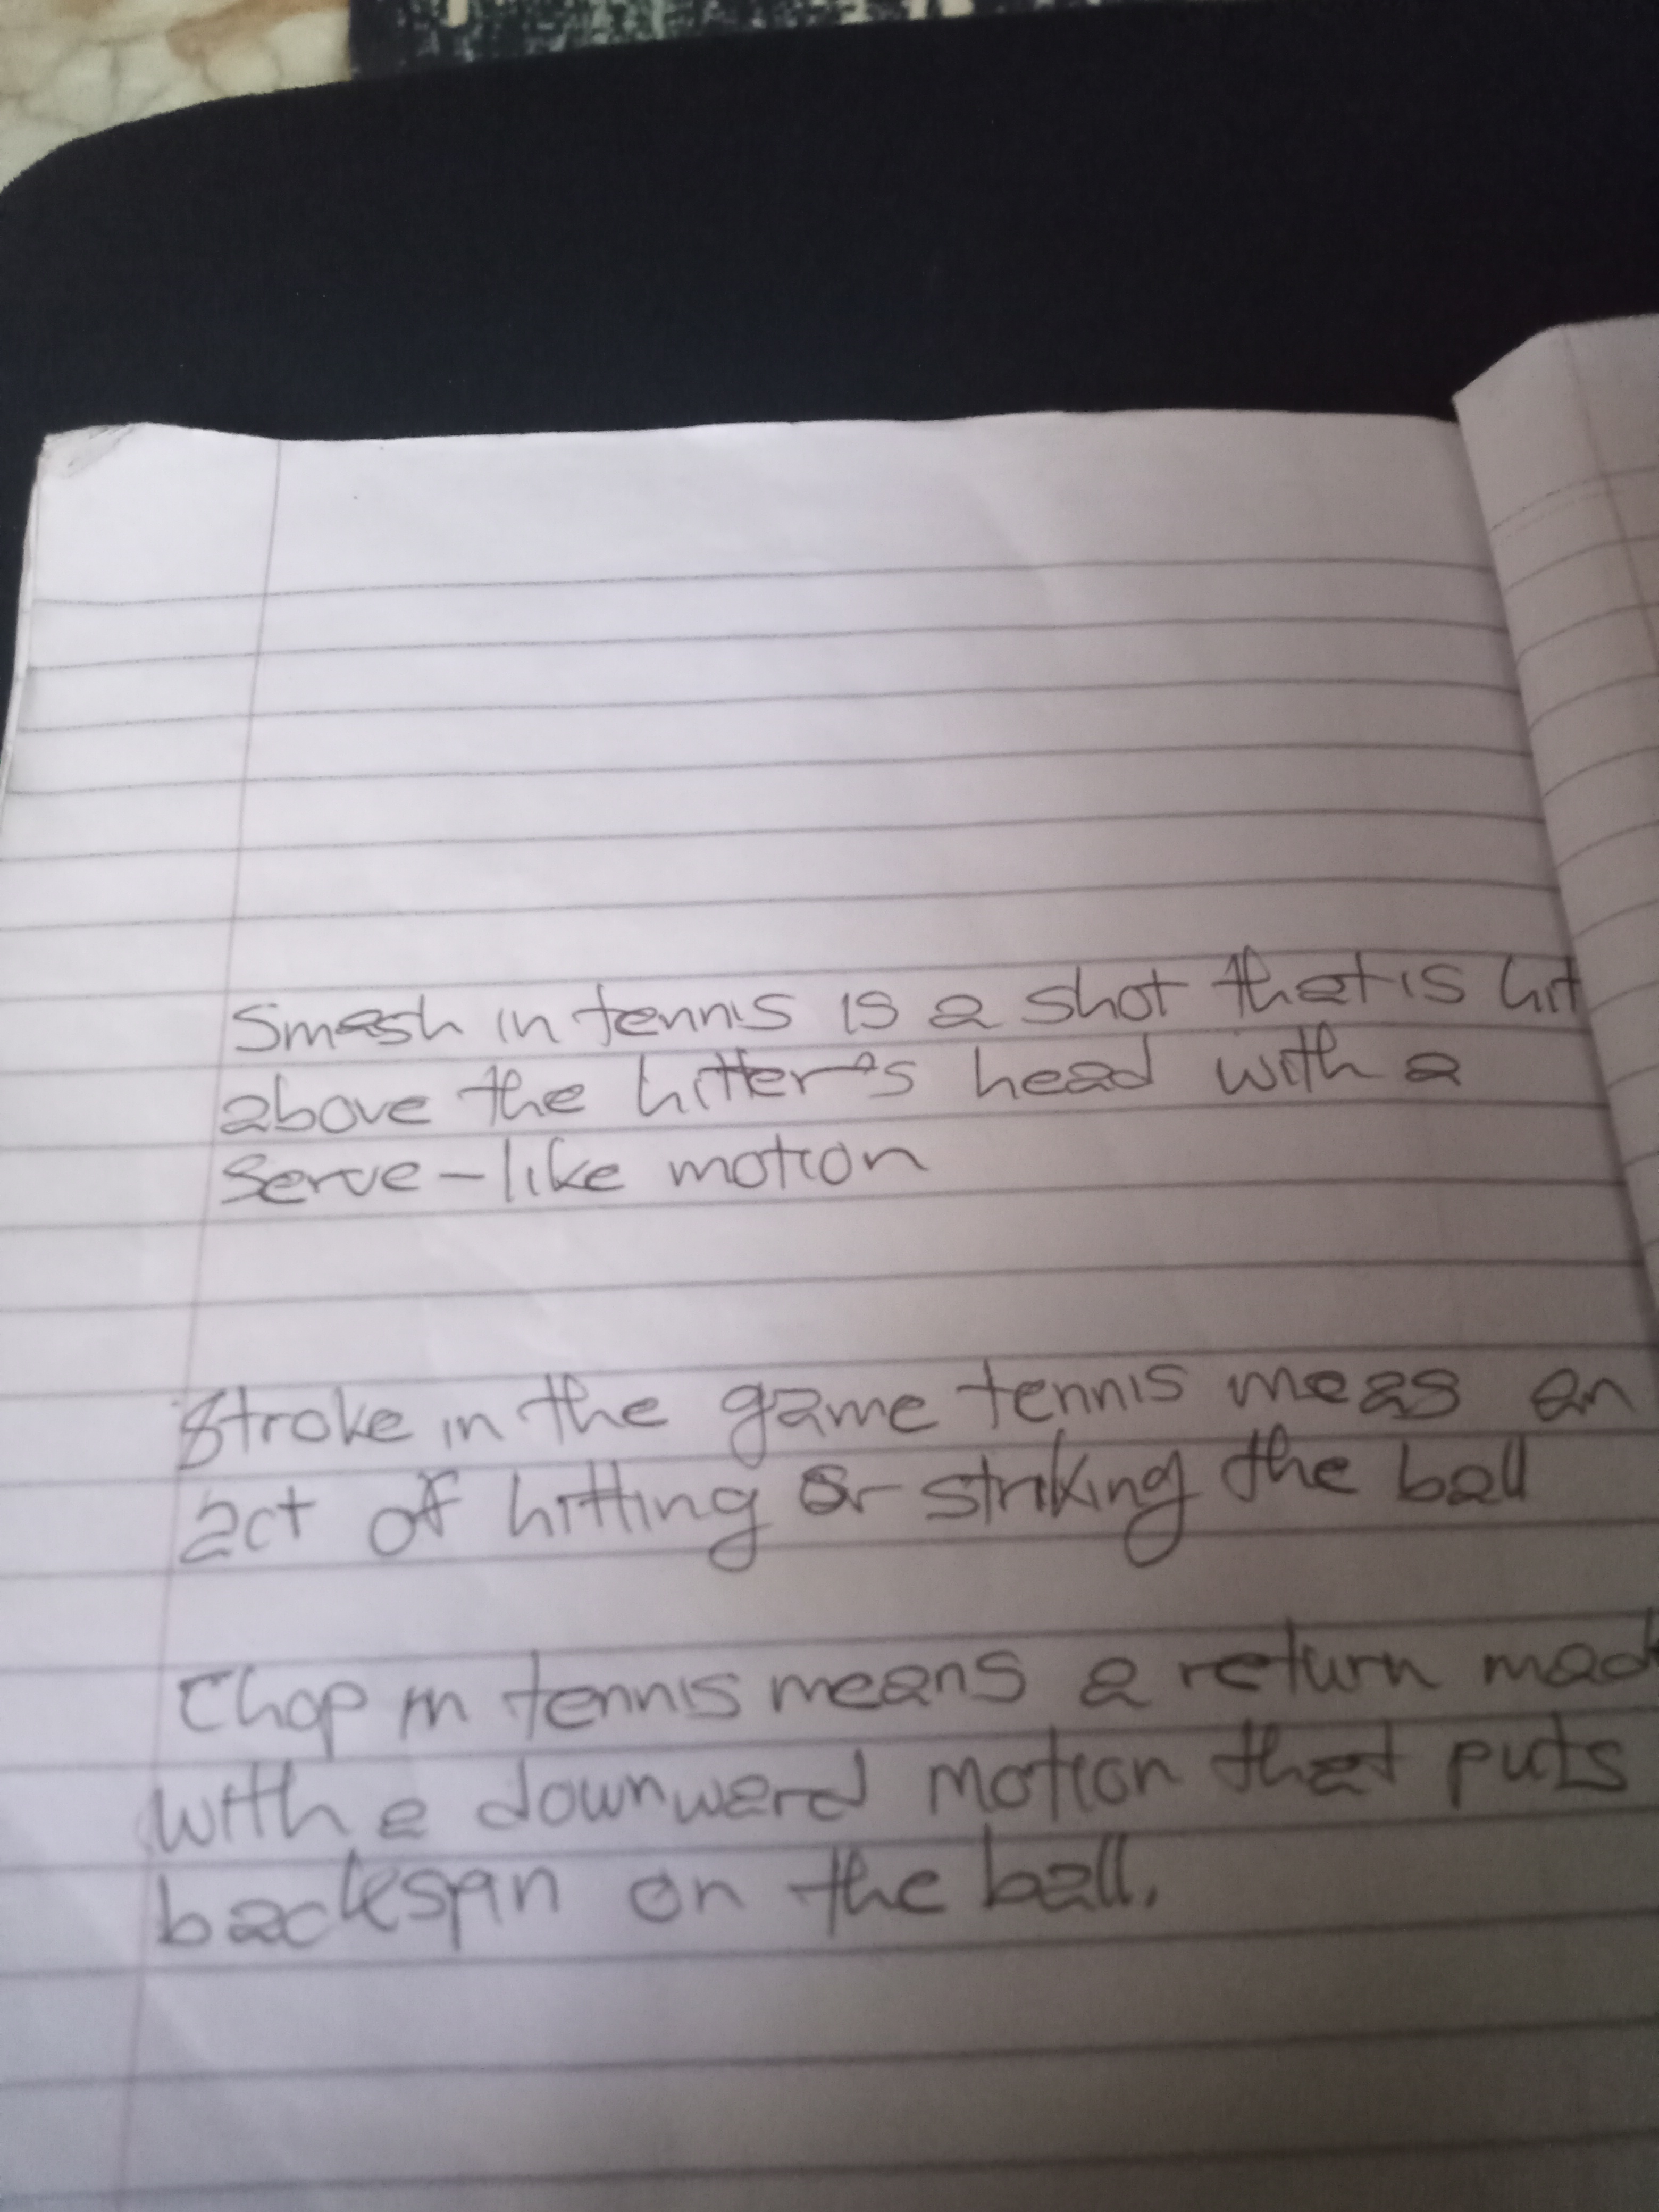 Smash in tennis is a shot that is hit
above the hitter's head with a
Serve-like motion
Stroke in the game tennis meas an
act of hitting or striking the ball
Chop in tennis means a return mad
with a downward motion that puts
backspin on the ball.